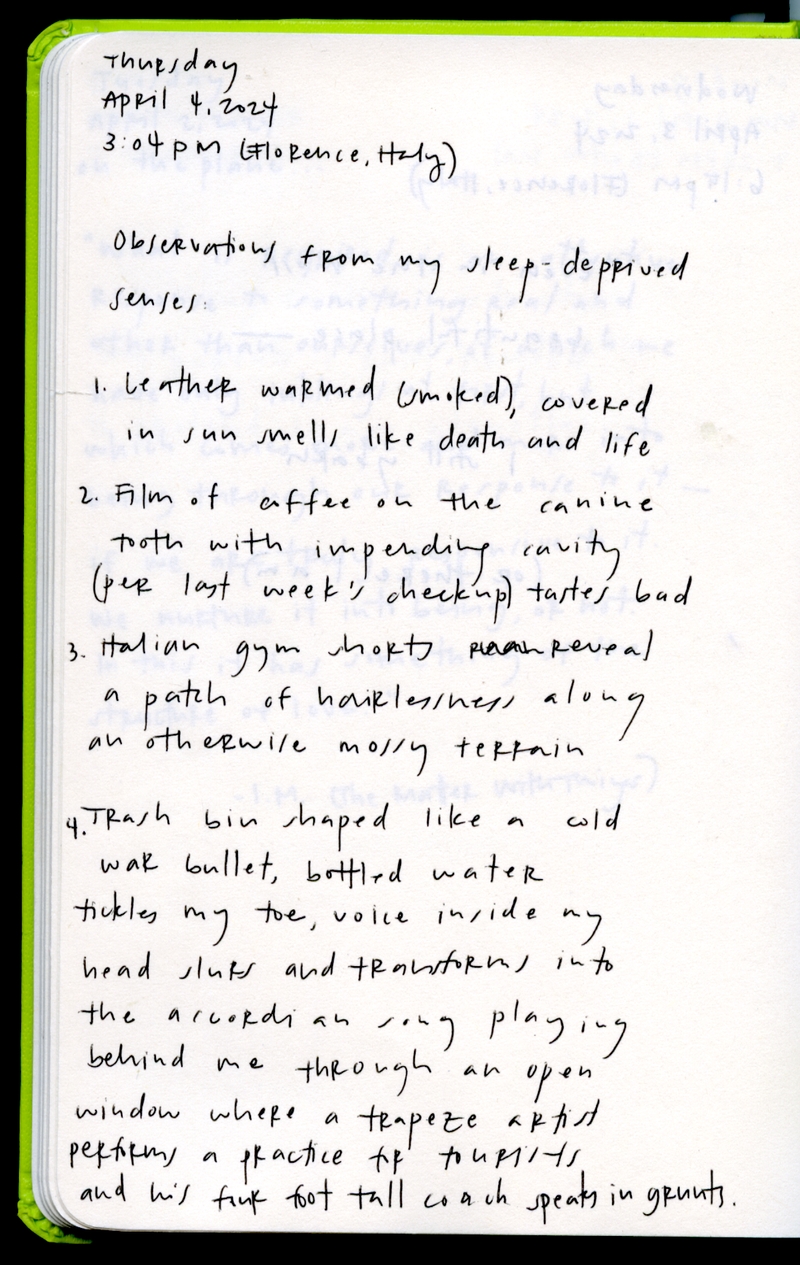 Thursday
April 4, 2024
3:04 pm (Florence, Italy)
Observations from my sleep-deprived
senses:
1. Leather warmed (smoked), covered
in sun smells like death and life
2. Film of coffee on the canine
tooth with impending cavity
(per last week's checkup) tastes bad
3. Italian gym shorts reveal
a patch of hairlessness along
an otherwise mossy terrain
4. Trash bin shaped like a cold
war bullet, bottled water
tickles my toe, voice inside my
head slurs and transforms into
the accordian song playing
behind me through an open
window where a trapeze artist
performs a practice for tourists
and his four foot tall coach speaks in grunts.